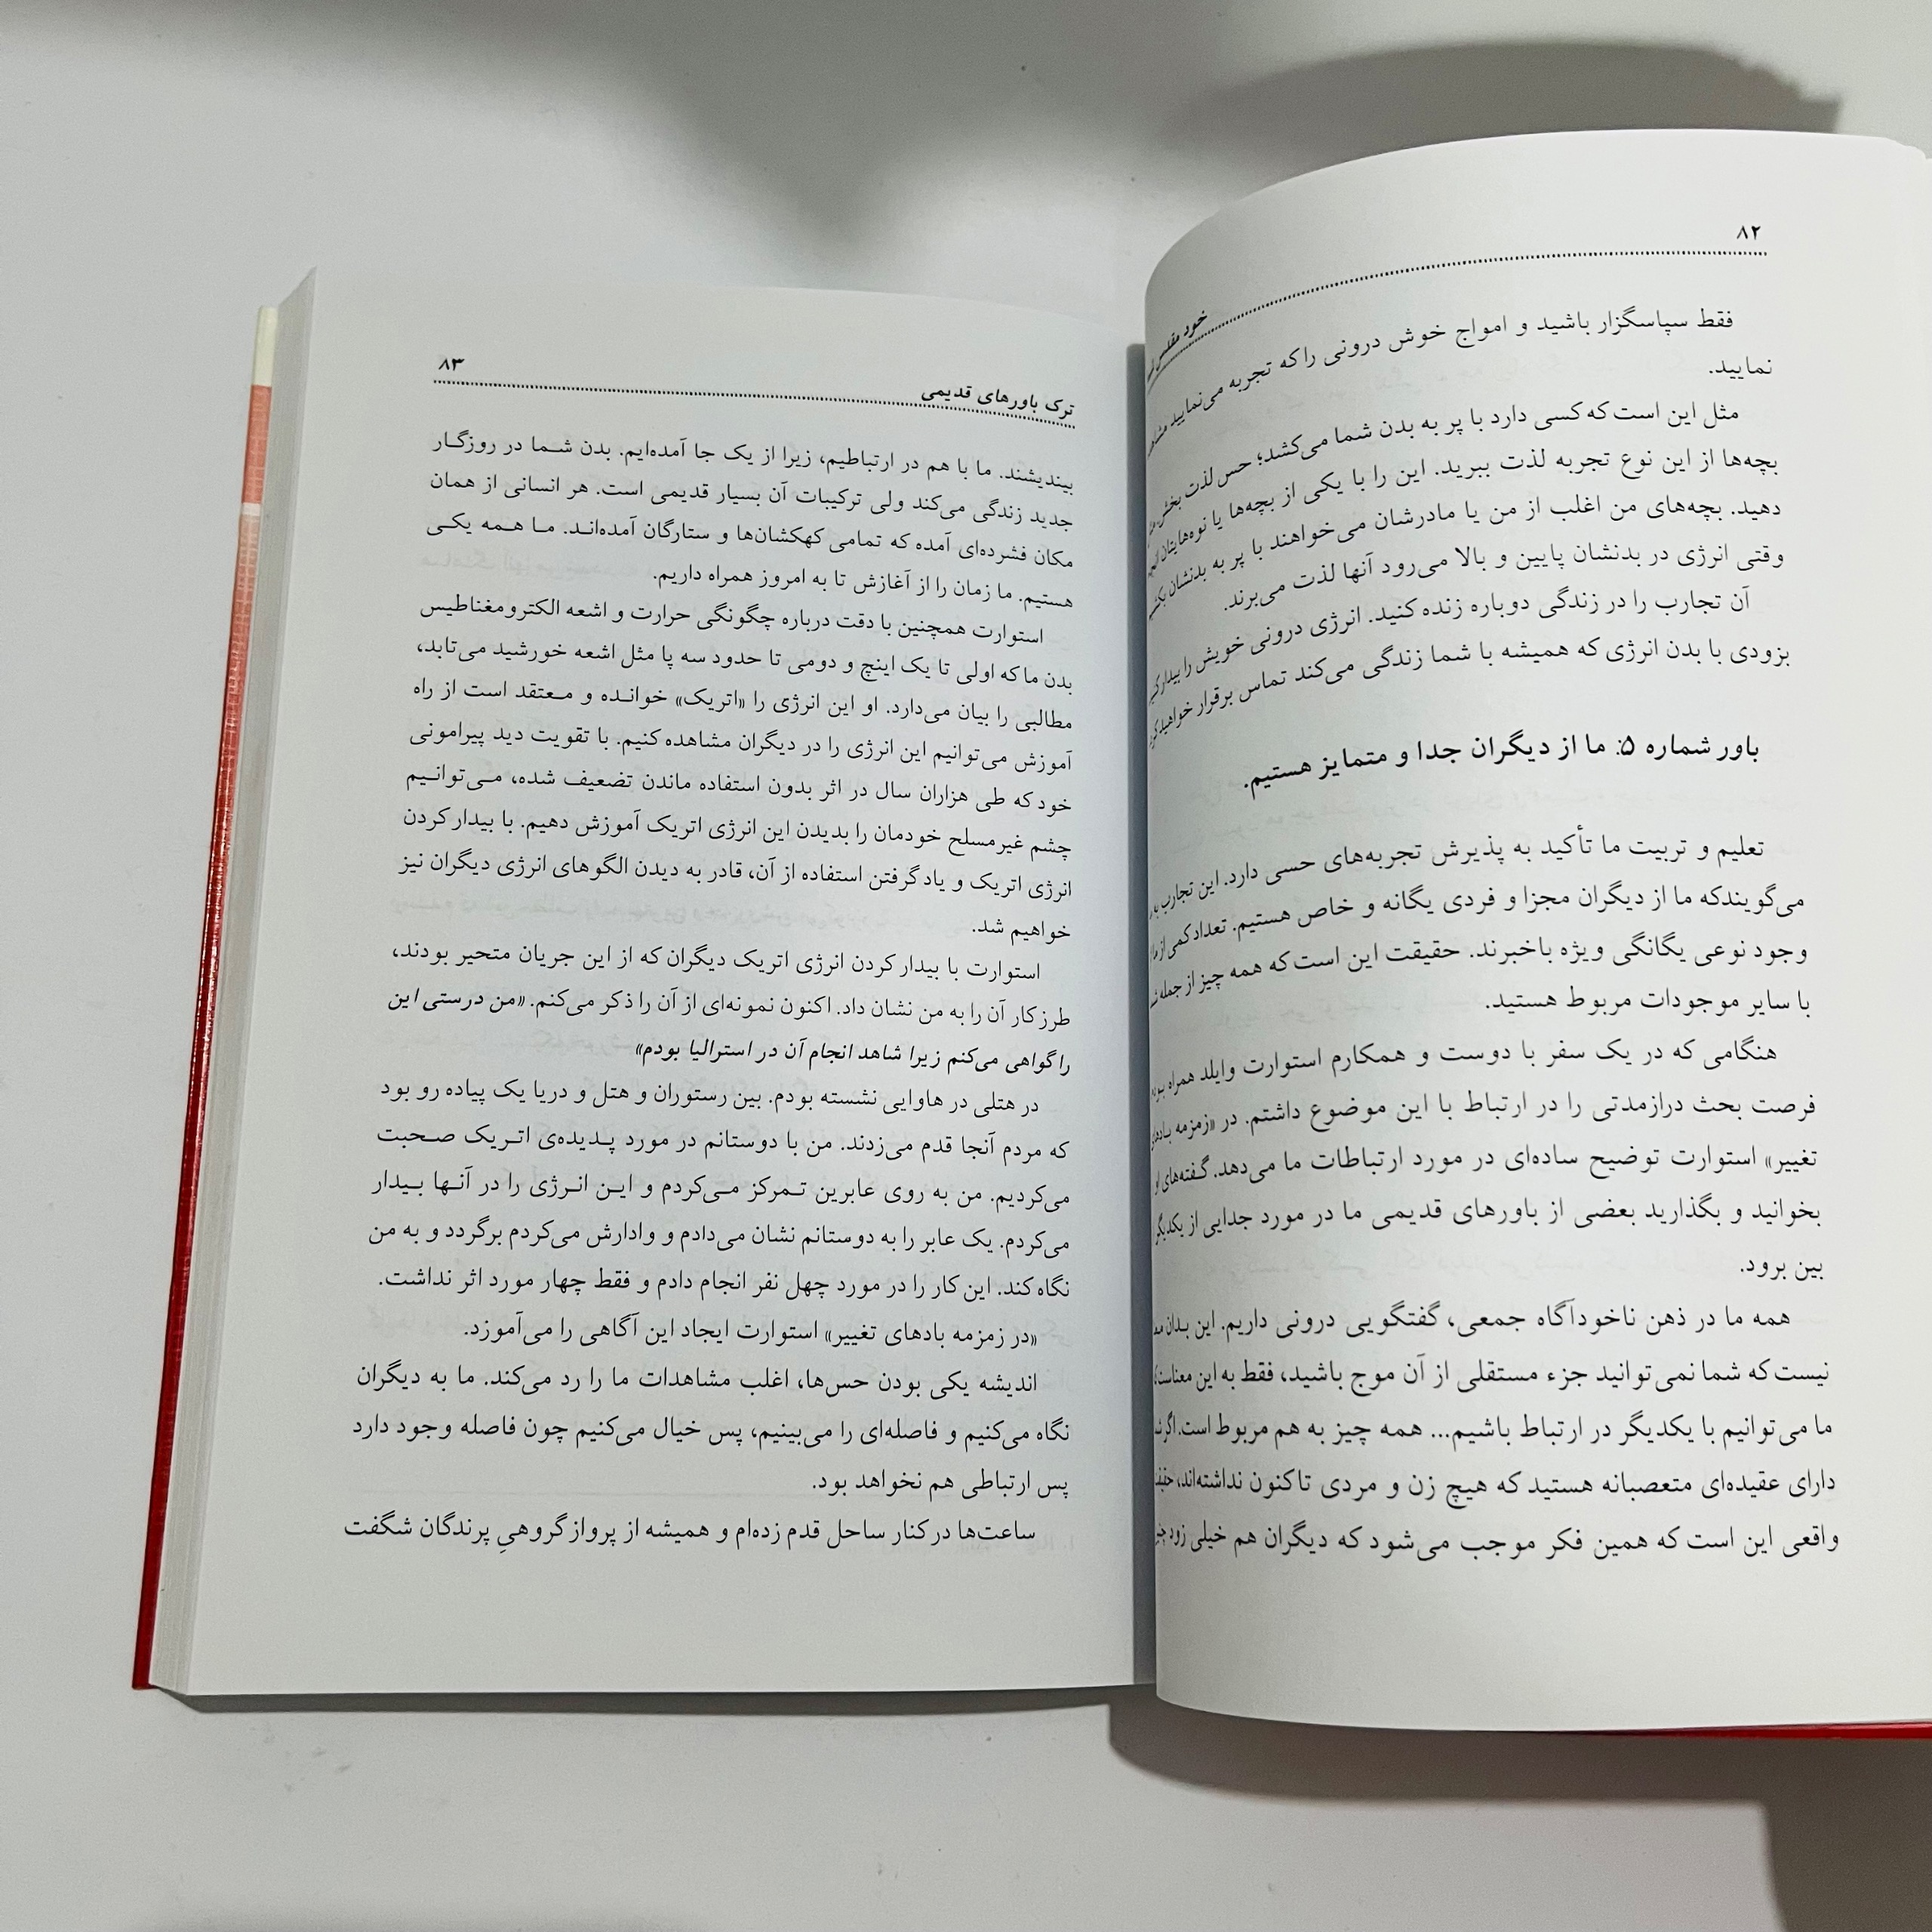 ۸۲
خود مقدس
فقط سپاسگزار باشید و امواج خوش درونی را که تجربه می‌نمایید
نمایید.
مثل این است که کسی دارد با پر به بدن شما می‌کشد؛ حس لذت بخش
بچه‌ها از این نوع تجربه لذت ببرید. این را با یکی از بچه‌ها یا نوه‌هایتان
دهید. بچه‌های من اغلب از من یا مادرشان می‌خواهند با پر به بدنشان بکشیم
وقتی انرژی در بدنشان پایین و بالا می‌رود آنها لذت می‌برند.
آن تجارب را در زندگی دوباره زنده کنید. انرژی درونی خویش را بیدار کنید
بزودی با بدن انرژی که همیشه با شما زندگی می‌کند تماس برقرار خواهید کرد
باور شماره ۵: ما از دیگران جدا و متمایز هستیم.
تعلیم و تربیت ما تأکید به پذیرش تجربه‌های حسی دارد. این تجارب
می‌گویندکه ما از دیگران مجزا و فردی یگانه و خاص هستیم. تعداد کمی از ما
وجود نوعی یگانگی ویژه باخبرند. حقیقت این است که همه چیز از جمله
با سایر موجودات مربوط هستید.
هنگامی که در یک سفر با دوست و همکارم استوارت وایلد همراه بودم
فرصت بحث درازمدتی را در ارتباط با این موضوع داشتم. در «زمزمه بادهای
تغییر» استوارت توضیح ساده‌ای در مورد ارتباطات ما می‌دهد. گفته‌های او
بخوانید و بگذارید بعضی از باورهای قدیمی ما در مورد جدایی از یکدیگر
بین برود.
همه ما در ذهن ناخودآگاه جمعی، گفتگویی درونی داریم. این بدان
نیست که شما نمی‌توانید جزء مستقلی از آن موج باشید، فقط به این معناست
ما می‌توانیم با یکدیگر در ارتباط باشیم... همه چیز به هم مربوط است. اگر
دارای عقیده‌ای متعصبانه هستید که هیچ زن و مردی تاکنون نداشته‌اند،
واقعی این است که همین فکر موجب می‌شود که دیگران هم خیلی زود
۸۳
ترک باورهای قدیمی
بیندیشند. ما با هم در ارتباطیم، زیرا از یک جا آمده‌ایم. بدن شما در روزگار
جدید زندگی می‌کند ولی ترکیبات آن بسیار قدیمی است. هر انسانی از همان
مکان فشرده‌ای آمده که تمامی کهکشان‌ها و ستارگان آمده‌اند. ما همه یکی
هستیم. ما زمان را از آغازش تا به امروز همراه داریم.
استوارت همچنین با دقت درباره چگونگی حرارت و اشعه الکترومغناطیس
بدن ما که اولی تا یک اینچ و دومی تا حدود سه پا مثل اشعه خورشید می‌تابد،
مطالبی را بیان می‌دارد. او این انرژی را «اتریک» خوانده و معتقد است از راه
آموزش می‌توانیم این انرژی را در دیگران مشاهده کنیم. با تقویت دید پیرامونی
خود که طی هزاران سال در اثر بدون استفاده ماندن تضعیف شده، می‌توانیم
چشم غیرمسلح خودمان را بدیدن این انرژی اتریک آموزش دهیم. با بیدار کردن
انرژی اتریک و یاد گرفتن استفاده از آن، قادر به دیدن الگوهای انرژی دیگران نیز
خواهیم شد.
استوارت با بیدار کردن انرژی اتریک دیگران که از این جریان متحیر بودند،
طرز کار آن را به من نشان داد. اکنون نمونه‌ای از آن را ذکر می‌کنم. «من درستی این
را گواهی می‌کنم زیرا شاهد انجام آن در استرالیا بودم»
در هتلی در هاوایی نشسته بودم. بین رستوران و هتل و دریا یک پیاده رو بود
که مردم آنجا قدم می‌زدند. من با دوستانم در مورد پدیده‌ی اتریک صحبت
می‌کردیم. من به روی عابرین تمرکز می‌کردم و این انرژی را در آنها بیدار
می‌کردم. یک عابر را به دوستانم نشان می‌دادم و وادارش می‌کردم برگردد و به من
نگاه کند. این کار را در مورد چهل نفر انجام دادم و فقط چهار مورد اثر نداشت.
«در زمزمه بادهای تغییر» استوارت ایجاد این آگاهی را می‌آموزد.
اندیشه یکی بودن حس‌ها، اغلب مشاهدات ما را رد می‌کند. ما به دیگران
نگاه می‌کنیم و فاصله‌ای را می‌بینیم، پس خیال می‌کنیم چون فاصله وجود دارد
پس ارتباطی هم نخواهد بود.
ساعت‌ها در کنار ساحل قدم زده‌ام و همیشه از پرواز گروهیِ پرندگان شگفت